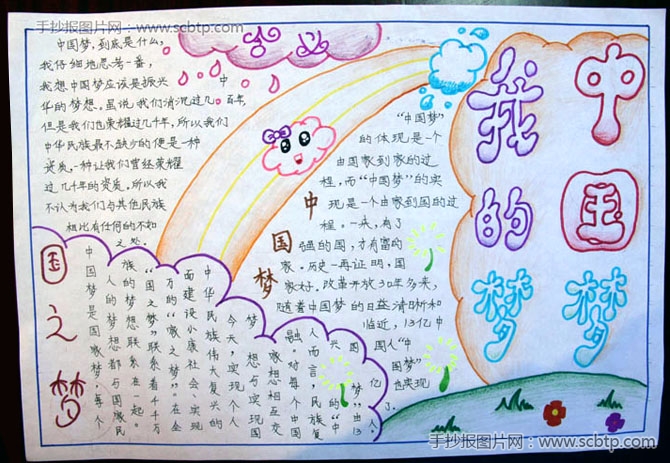 手抄报图片网：www.scbtp.com
中国梦,到底是什么,
我仔细地思考一番,
我想中国梦应该是振兴中
华的梦想。虽说我们消沉过几百年,
但是我们也荣耀过几千年,所以我们
中华民族最不缺少的便是一种
资质,一种让我们曾经荣耀
过几千年的资质。所以我
不认为我们与其他民族
相比有任何的不如
之处。
中国梦
“中国梦”
的体现是一个
由国家到家的过
程,而“中国梦”的实
现是一个由家到国的过
程。一来,有了
强的国,才有富的
家。历史一再证明,国
家好。改革开放30年多来,
随着中国梦的日益清晰和
临近,13亿中
国人“中
国梦”
也实现
了。
中国梦
我的梦
国之梦
中国梦是国家梦,每个
人的梦想都与国
族的梦想联系在一起。
“国之梦”联系着千千万
万的“家之梦”。在全
面建设小康社会、实现
中华民族伟大复兴的
今天,实现个人
梦想与实现国
想相互交
融。对每个中国
人而言,民族复
手抄报图片网：www.scbtp.com